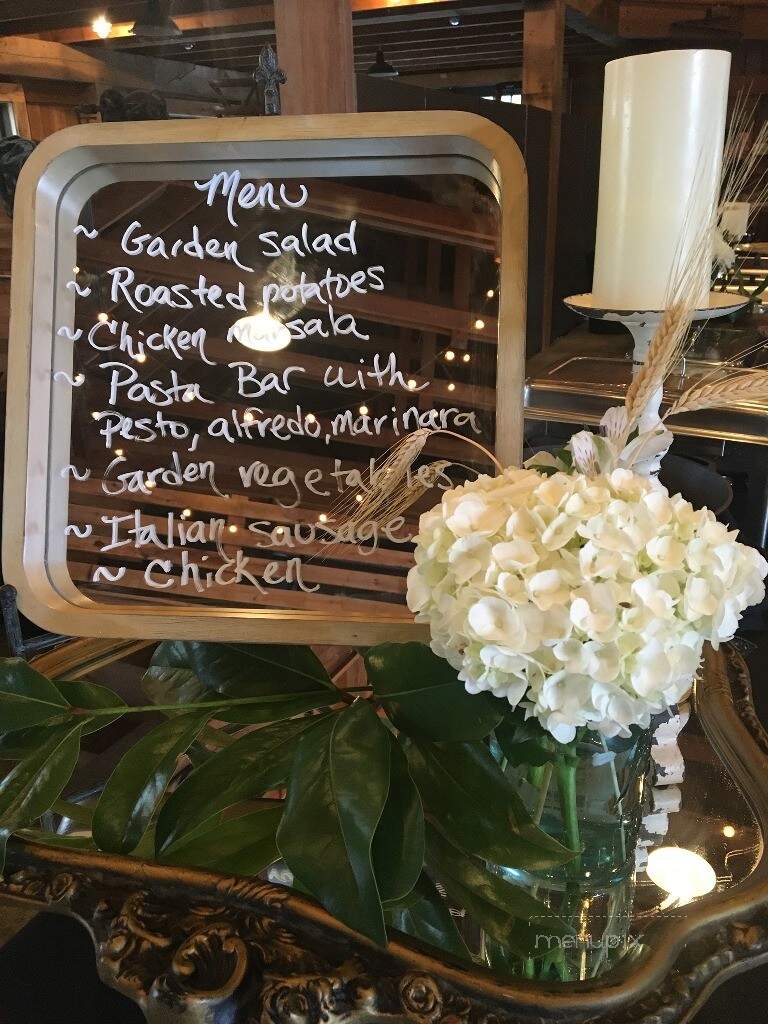 Menu
~ Garden salad
~ Roasted potatoes
~ Chicken marsala
~ Pasta Bar with
Pesto, alfredo, marinara
~ Garden vegetables
~ Italian sausage
~ Chicken
menupix